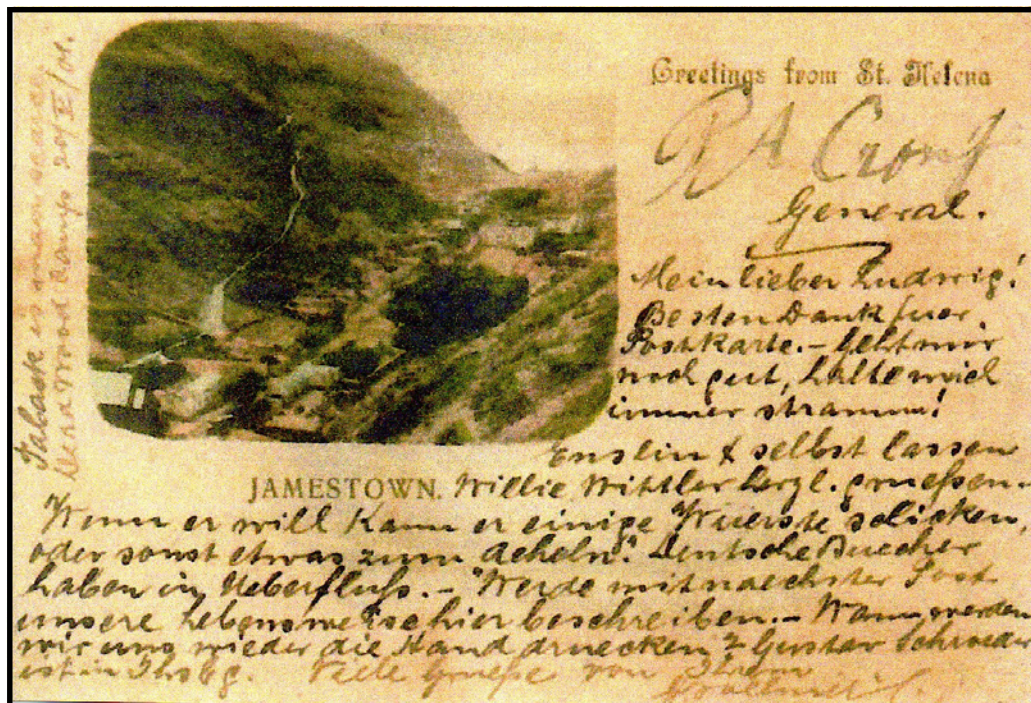 Greetings from St. Helena
General.
Mein lieber Ludwig!
Besten Dank fuer
Postkarte. – Geht mir
noch gut, halte mich
immer stramm!
Enslin & selbst lassen
JAMESTOWN. Willie Wittler hergl. gruessen.
Wenn er will kann er einige Wuerste schicken,
oder sonst etwas zum acheln." Deutsche Buecher
haben in Ueberfluss. – Werde mit naechster Post
unsere Lebensweise hier beschreiben. – Wann werden
wir uns wieder die Hand druecken? Gustav Schroeder
ist in Jhsbg. Viele Gruesse von Ihrem
Tabaak is maar scaars
Deadwood Camp